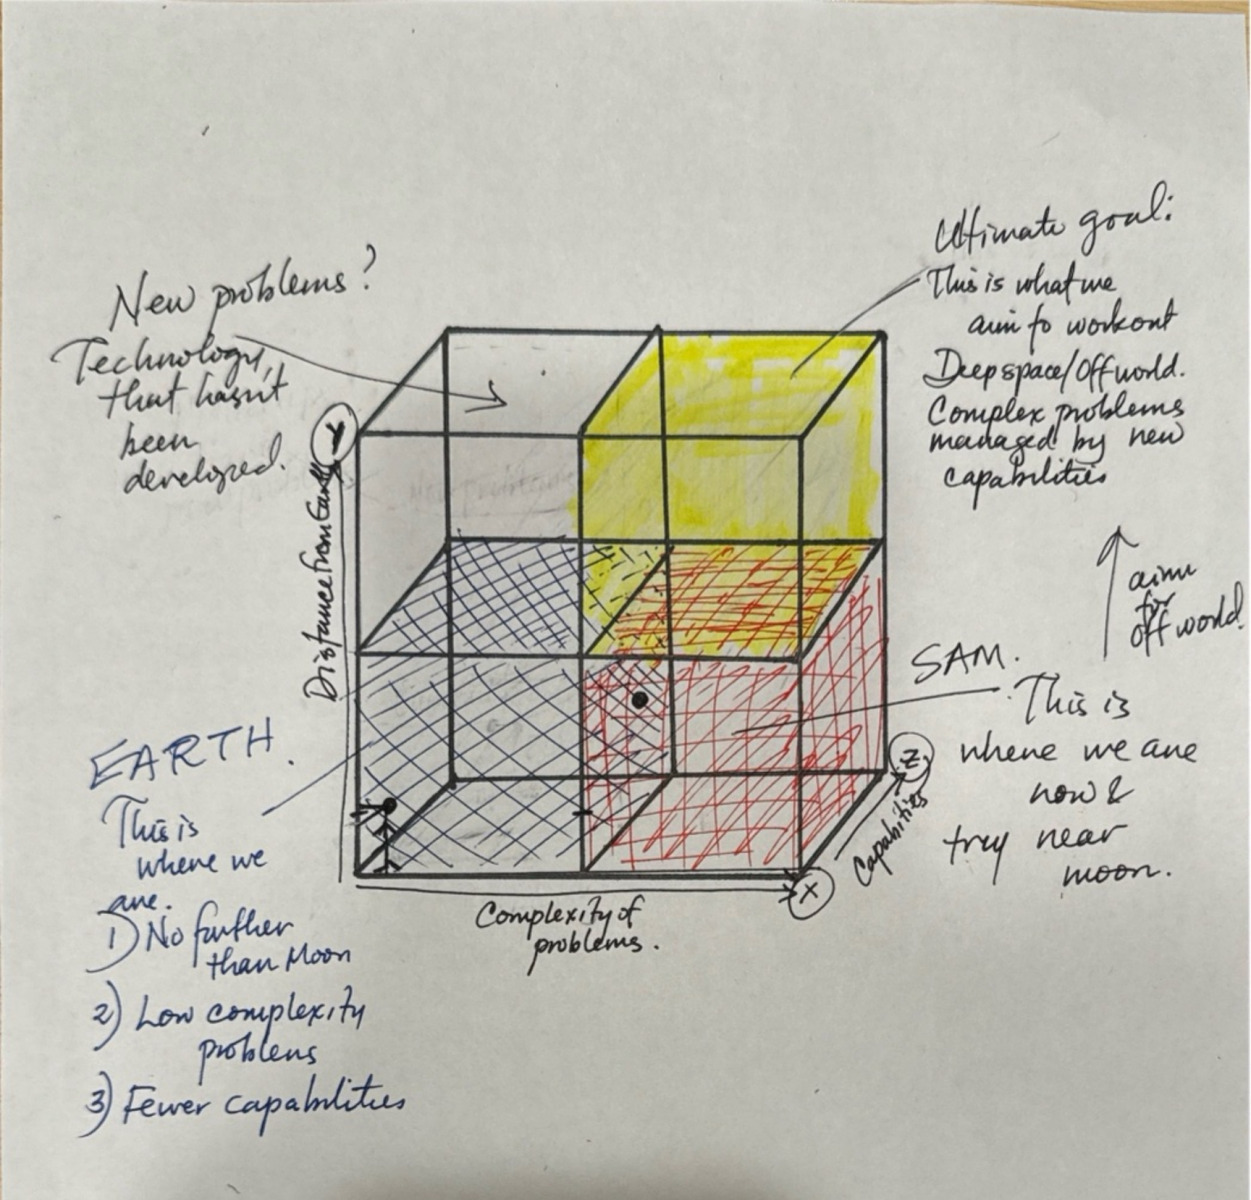 New problems?
Technology,
that hasn't
been
developed.
Ultimate goal:
This is what we
aim to workout
Deep space/Off world.
Complex problems
managed by new
capabilities
Y
Distance from Earth
aim
for
off world.
SAM.
This is
where we are
now &
near
moon.
EARTH.
This is
where we
are.
1) No further
than Moon
2) Low complexity
problems
3) Fewer capabilities
Z
Capabilities
X
Complexity of
problems.